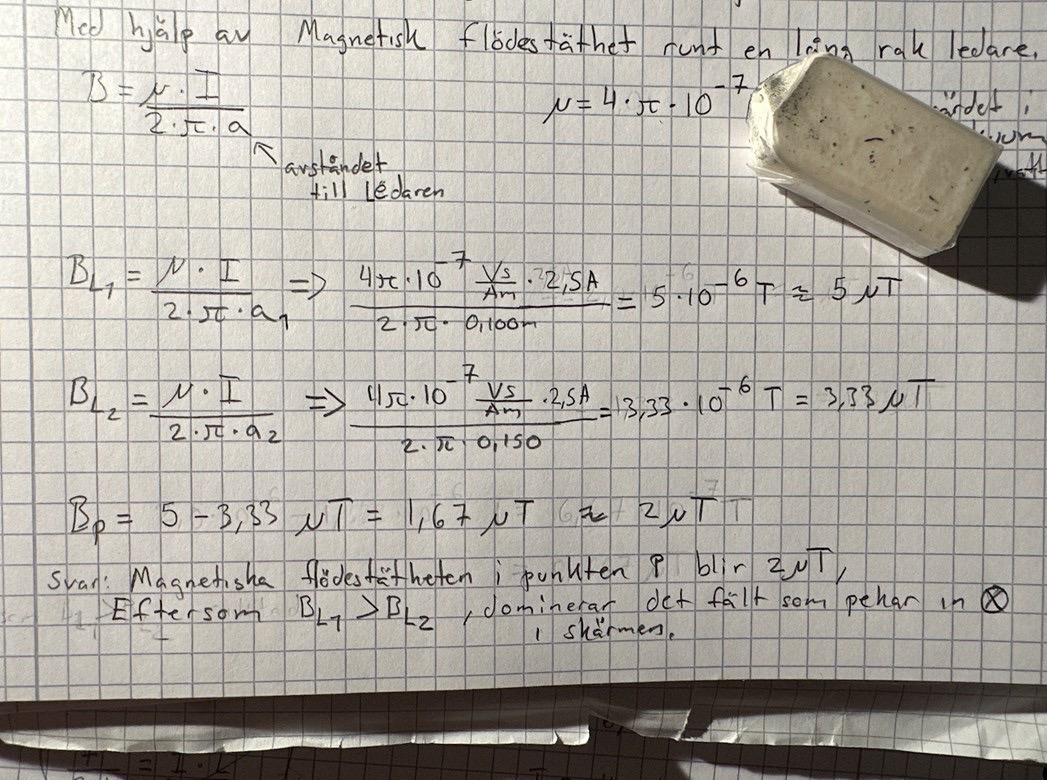 Med hjälp av Magnetisk flödestäthet runt en lång rak ledare.
B = μ · I / 2 · π · a
μ = 4 · π · 10^-7
avståndet
till Ledaren
B_L1 = μ · I / 2 · π · a_1 => 4π · 10^-7 Vs/Am · 2,5A / 2 · π · 0,100m = 5 · 10^-6 T ≈ 5 μT
B_L2 = μ · I / 2 · π · a_2 => 4π · 10^-7 Vs/Am · 2,5A / 2 · π · 0,150 = 3,33 · 10^-6 T = 3,33 μT
B_p = 5 - 3,33 μT = 1,67 μT ≈ 2 μT
Svar: Magnetiska flödestätheten i punkten P blir 2 μT,
Eftersom B_L1 > B_L2, dominerar det fält som pekar in ⊗
i skärmen.